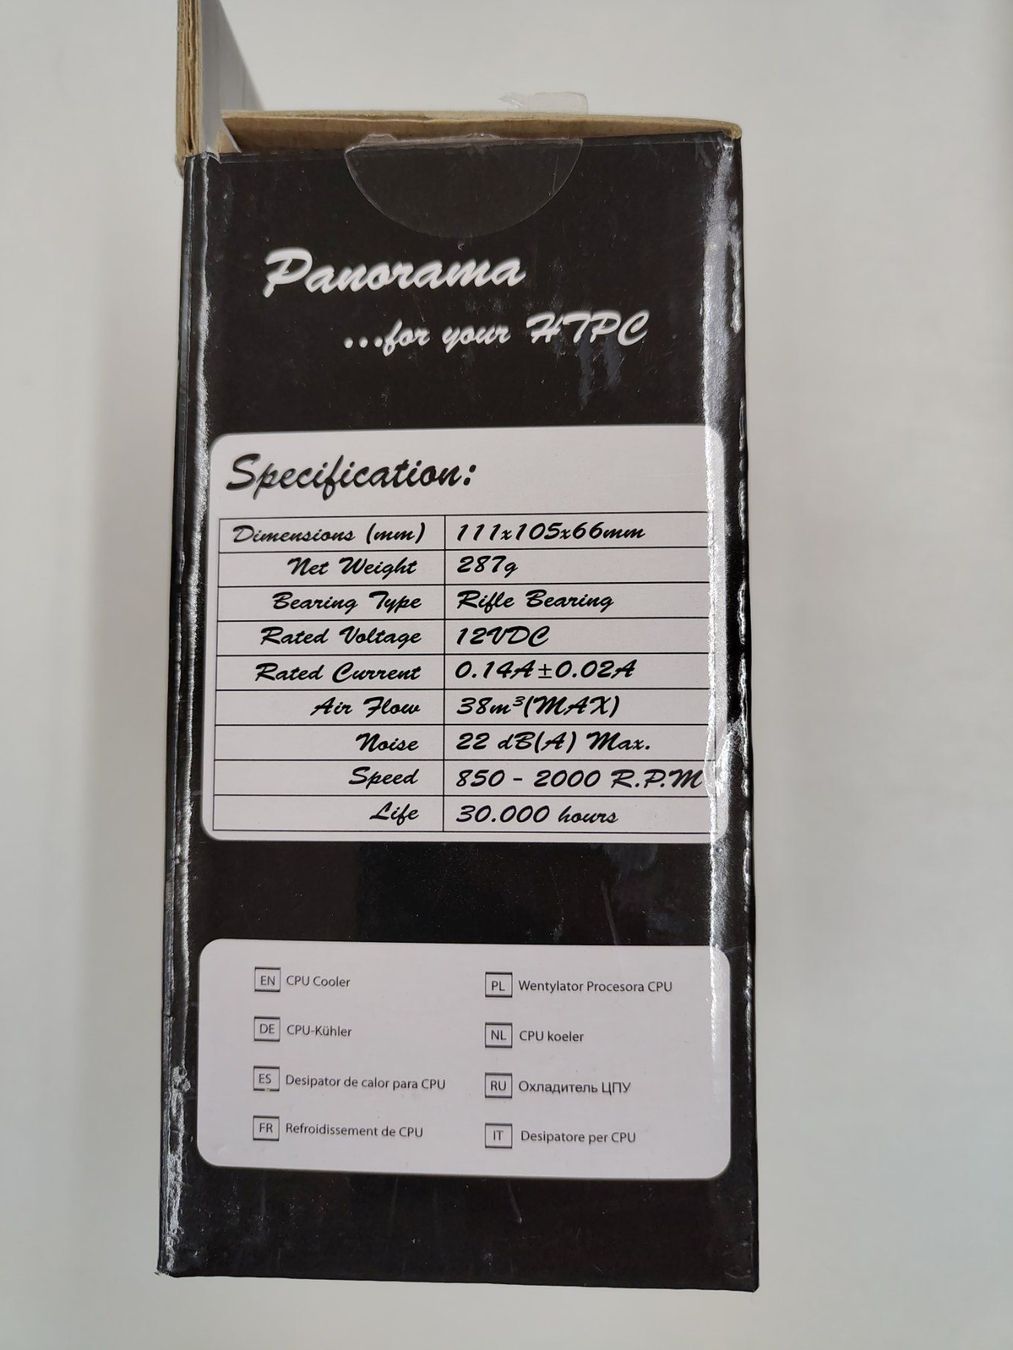 Panorama
...for your HTPC
Specification:
Dimensions (mm) 111x105x66mm
Net Weight 287g
Bearing Type Rifle Bearing
Rated Voltage 12VDC
Rated Current 0.14A±0.02A
Air Flow 38m³(MAX)
Noise 22 dB(A) Max.
Speed 850 - 2000 R.P.M
Life 30.000 hours
EN CPU Cooler
DE CPU-Kühler
ES Desipator de calor para CPU
FR Refroidissement de CPU
PL Wentylator Procesora CPU
NL CPU koeler
RU Охладитель ЦПУ
IT Desipatore per CPU